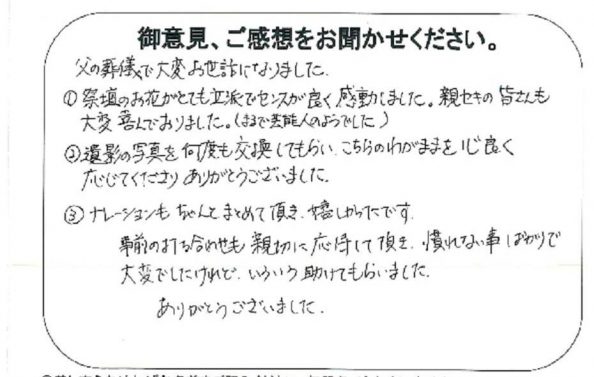 御意見、ご感想をお聞かせください。
父の葬儀で大変お世話になりました.
①祭壇のお花がとても立派でセンスが良く感動しました。親セキの皆さんも
大変喜んでおりました。(まるで芸能人のようでした)
②遺影の写真を何度も交換してもらい、こちらのわがままを心良く
応じてくださり ありがとうございました。
③ナレーションも ちゃんと まとめて頂き、嬉しかったです.
事前の打ち合わせも 親切に応待して頂き、慣れない事ばかりで
大変でしたけれど、いろいろ助けてもらいました.
ありがとうございました.